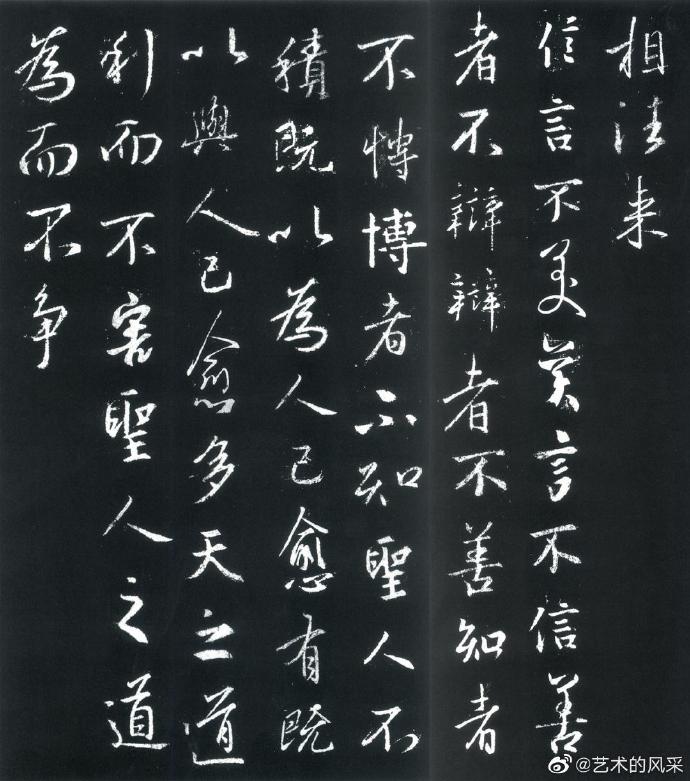 相往来
信言不美美言不信善
者不辯辯者不善知者
不愽博者不知聖人不
積既以為人己愈有既
以與人己愈多天之道
利而不害聖人之道
為而不争
@艺术的风采